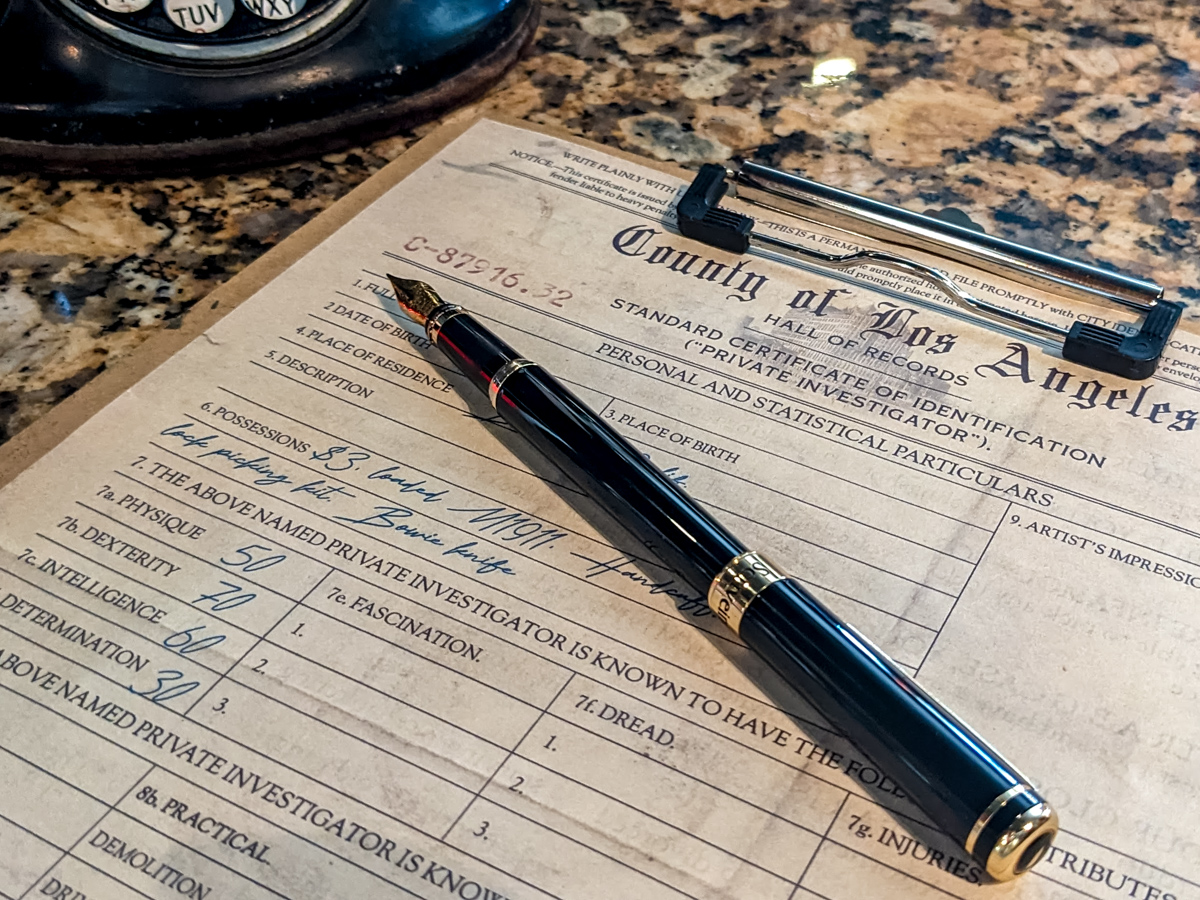 TUV
WXY
WRITE PLAINLY WITH
NOTICE.—This certificate is issued
fender liable to heavy penal
—THIS IS A PERMAN
FILE PROMPTLY with CITY
authorized
promptly place it in
County of Los Angeles
HALL OF RECORDS
STANDARD CERTIFICATE OF IDENTIFICATION
("PRIVATE INVESTIGATOR").
C-87916.32
PERSONAL AND STATISTICAL PARTICULARS
1. FULL
2 DATE OF BIRTH
3. PLACE OF BIRTH
4. PLACE OF RESIDENCE
5. DESCRIPTION
9. ARTIST'S IMPRESSI
6. POSSESSIONS $3. loaded M1911. Handcuff
lock picking kit. Bowie knife
7. THE ABOVE NAMED PRIVATE INVESTIGATOR IS KNOWN TO HAVE THE FOL
TRIBUTES
7a. PHYSIQUE 50
7b. DEXTERITY 70
7c. INTELLIGENCE 60
DETERMINATION 30
7e. FASCINATION.
1.
2.
3.
7f. DREAD.
1.
2.
3.
7g. INJURIES.
ABOVE NAMED PRIVATE INVESTIGATOR IS KNOW
8b. PRACTICAL.
DEMOLITION
DRI